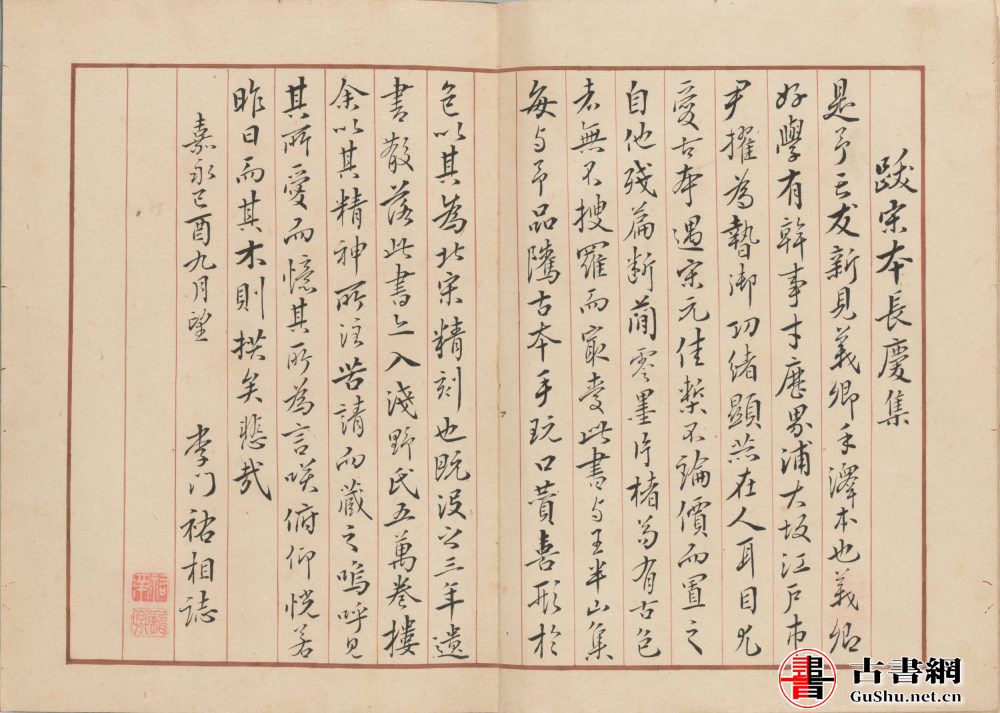 跋宋本長慶集
是予亡友新見義卿手澤本也義卿
好學有幹事才歷界浦大坂江戶市
尹擢為贄御功緒顯然在人耳目尤
愛古本遇宋元佳槧不論價而置之
自他殘篇斷簡零墨片楮苟有古色
者無不搜羅而寂愛此書与王半山集
每与予品隲古本手玩口蕡喜形於
色以其為北宋精刻也既沒之三年遺
書散落此書亦入淺野氏五萬卷樓
余以其精神所注苦請而蔵之嗚呼見
其所愛而憶其所為言咲俯仰恍若
昨日而其木則拱矣悲哉
嘉永己酉九月望 李门祐相誌
書 古書網
GuShu.net.cn